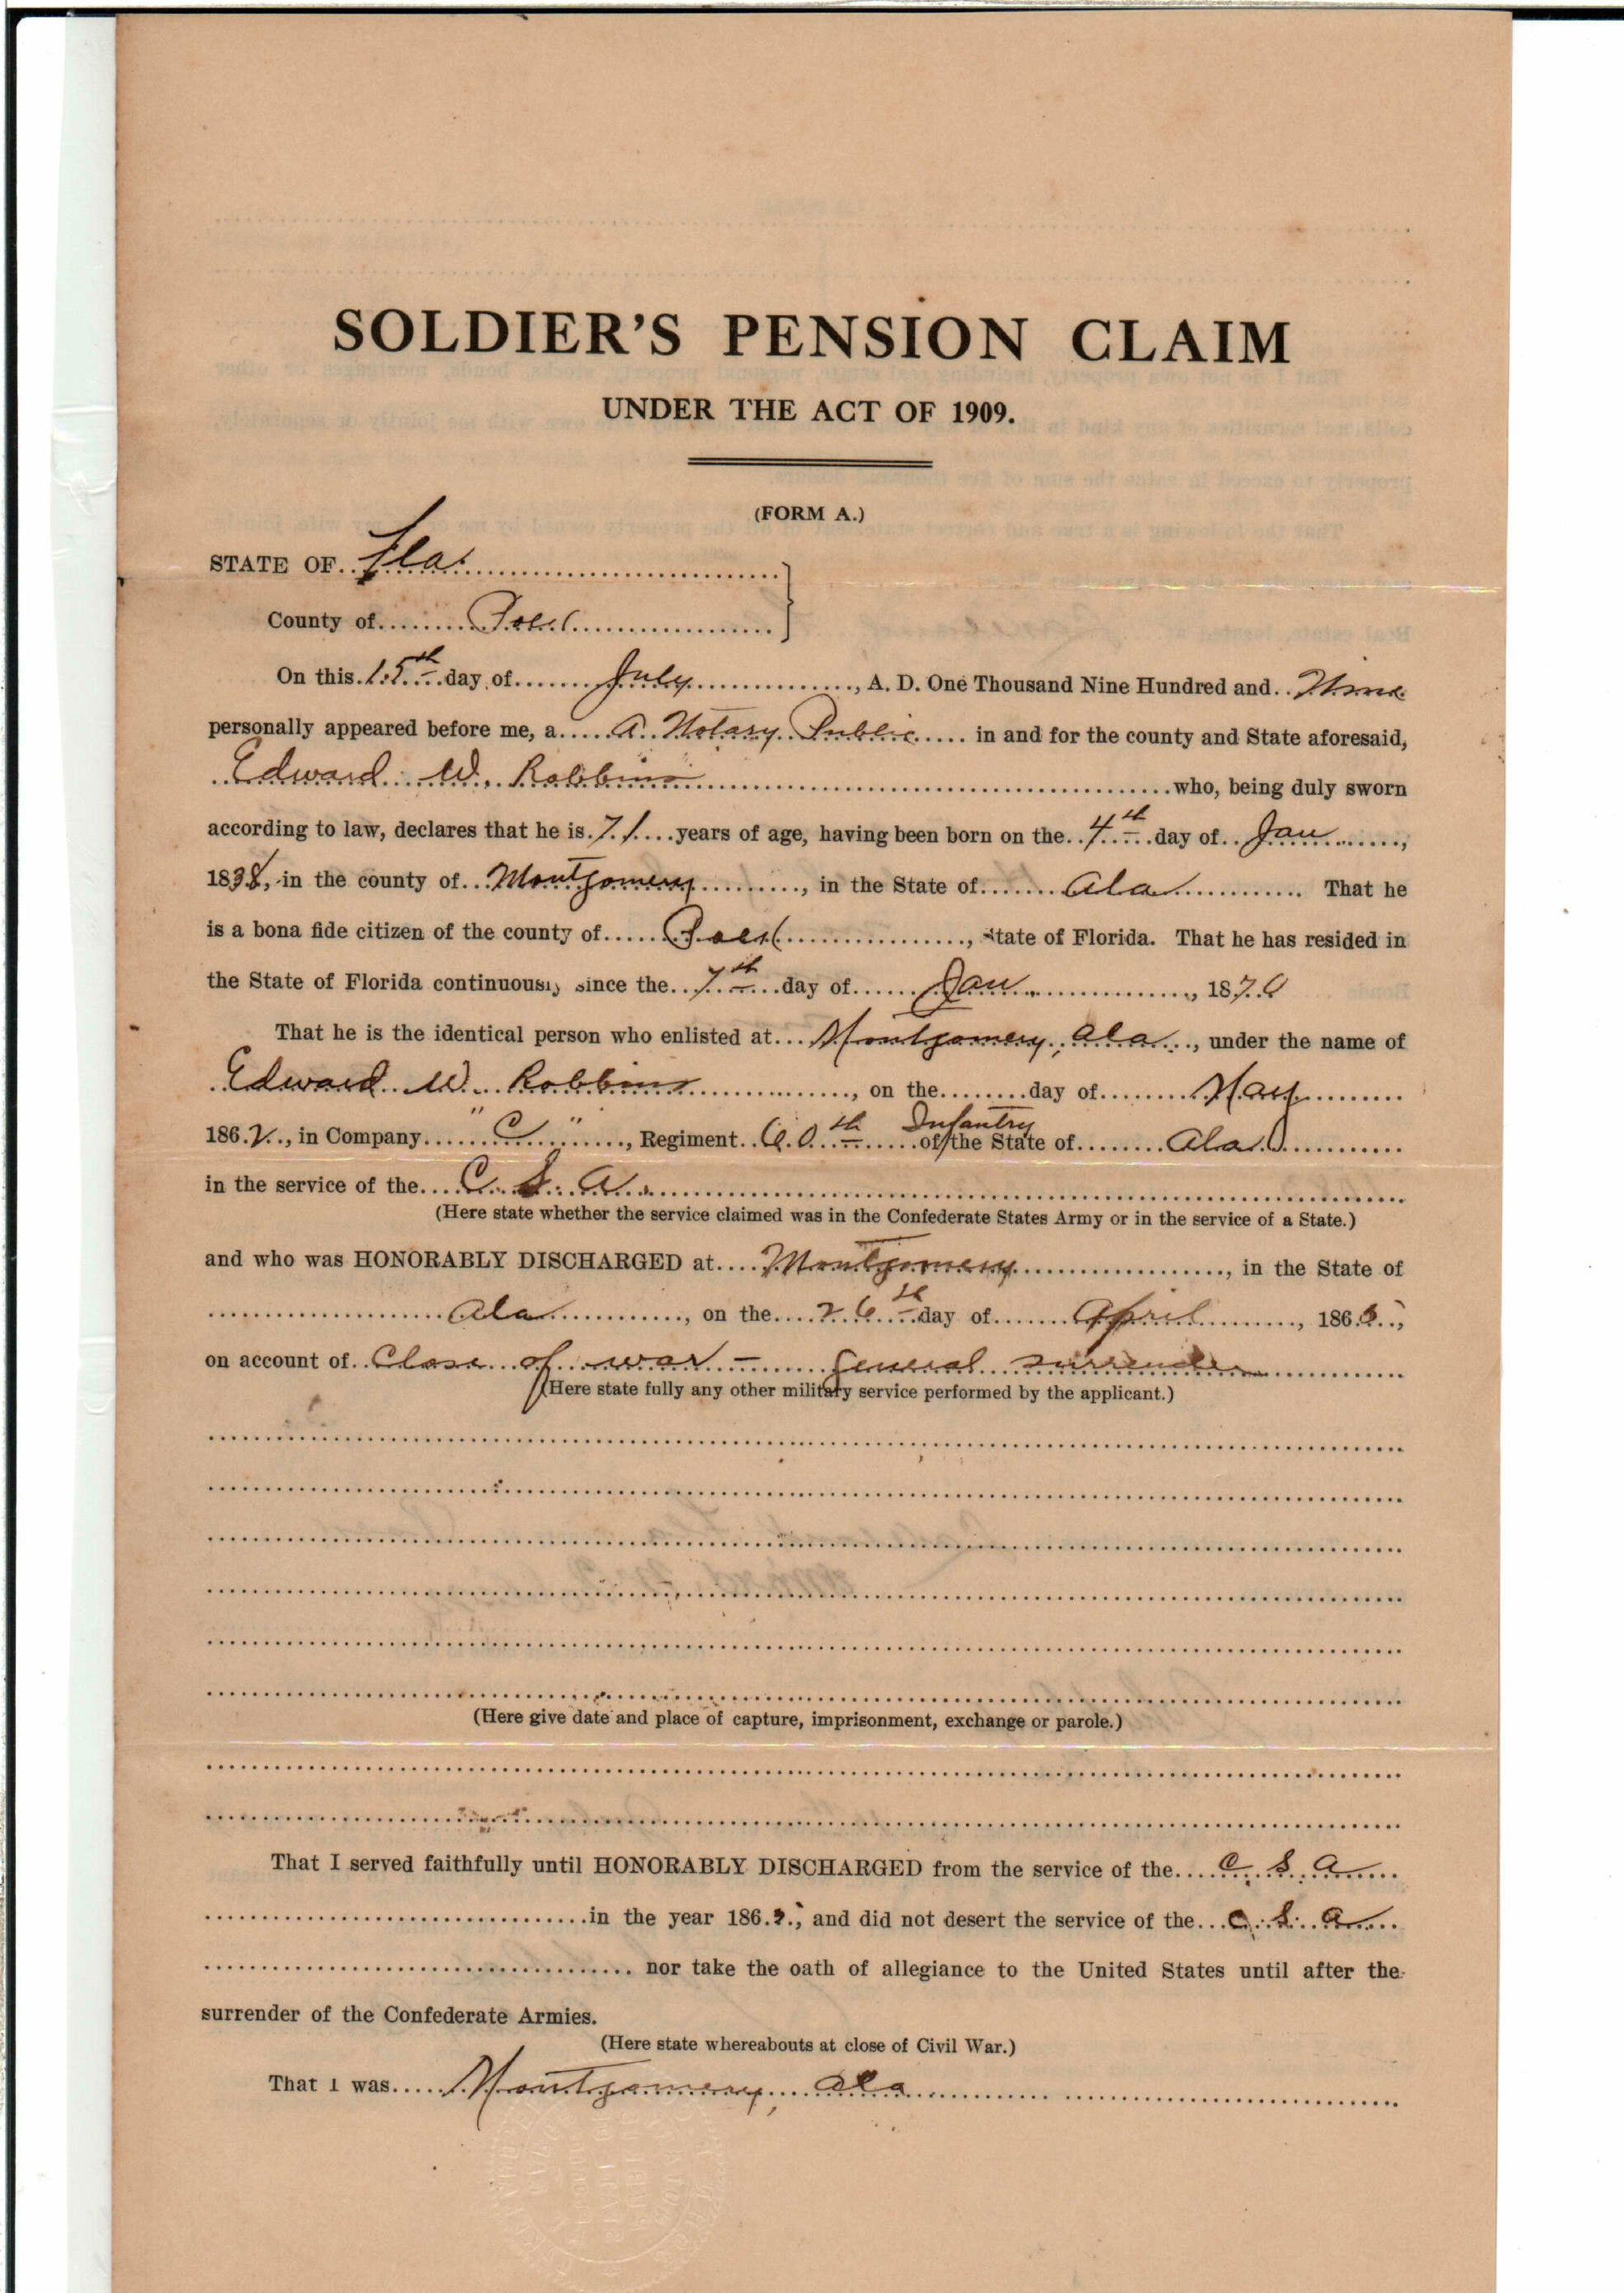 SOLDIER'S PENSION CLAIM
UNDER THE ACT OF 1909.
(FORM A.)
STATE OF Fla.
County of Polk
On this 15th day of July, A. D. One Thousand Nine Hundred and Nine
personally appeared before me, a A Notary Public in and for the county and State aforesaid,
Edward W. Robbins who, being duly sworn
according to law, declares that he is 71 years of age, having been born on the 4th day of Jan,
1838, in the county of Montgomery, in the State of Ala. That he
is a bona fide citizen of the county of Polk, State of Florida. That he has resided in
the State of Florida continuously since the 7th day of Jan., 187
That he is the identical person who enlisted at Montgomery, Ala., under the name of
Edward W. Robbins, on the day of May
1862., in Company "C", Regiment 60th Infantry of the State of Ala.
in the service of the C. S. A.
(Here state whether the service claimed was in the Confederate States Army or in the service of a State.)
and who was HONORABLY DISCHARGED at Montgomery, in the State of
Ala, on the 26th day of April, 186
on account of Close of war — general surrender
(Here state fully any other military service performed by the applicant.)
(Here give date and place of capture, imprisonment, exchange or parole.)
That I served faithfully until HONORABLY DISCHARGED from the service of the C. S. A
in the year 186 , and did not desert the service of the C. S. A
nor take the oath of allegiance to the United States until after the
surrender of the Confederate Armies.
(Here state whereabouts at close of Civil War.)
That I was Montgomery, Ala